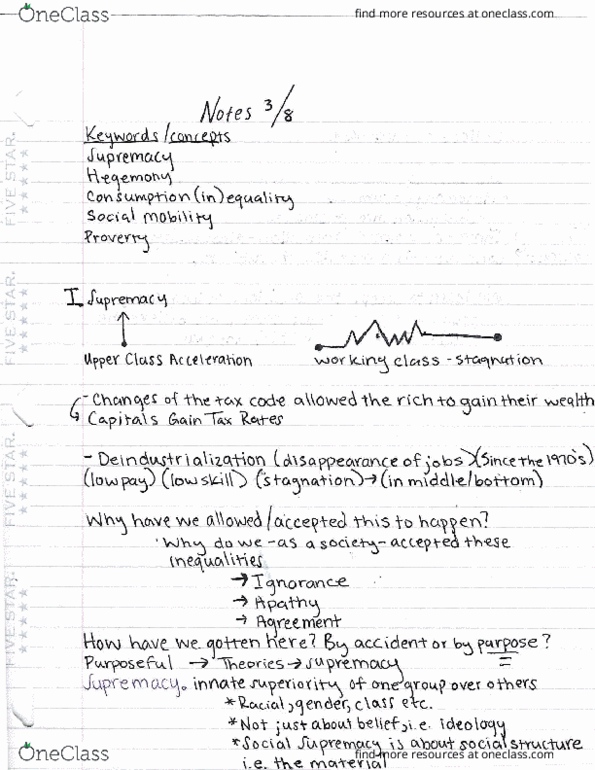 OneClass
find more resources at oneclass.com
Notes 3/8
Keywords/concepts
Supremacy
Hegemony
Consumption(in)equality
Social mobility
Proverty
I Supremacy
Upper Class Acceleration
working class - stagnation
- Changes of the tax code allowed the rich to gain their wealth
Capitals Gain Tax Rates
- Deindustrialization (disappearance of jobs)(Since the 1970's)
(low pay) (low skill) (stagnation)→(in middle/bottom)
Why have we allowed/accepted this to happen?
Why do we -as a society- accepted these
inequalities
→ Ignorance
→ Apathy
→ Agreement
How have we gotten here? By accident or by purpose?
Purposeful → Theories → supremacy
Supremacy. innate superiority of one group over others
*Racial, gender, class etc.
*Not just about belief, i.e. ideology
*Social Supremacy is about social structure
i.e. the material
OneClass
find more resources at oneclass.com
FIVE STAR.
FIVE STAR.
FIVE STAR.
FIVE STAR.